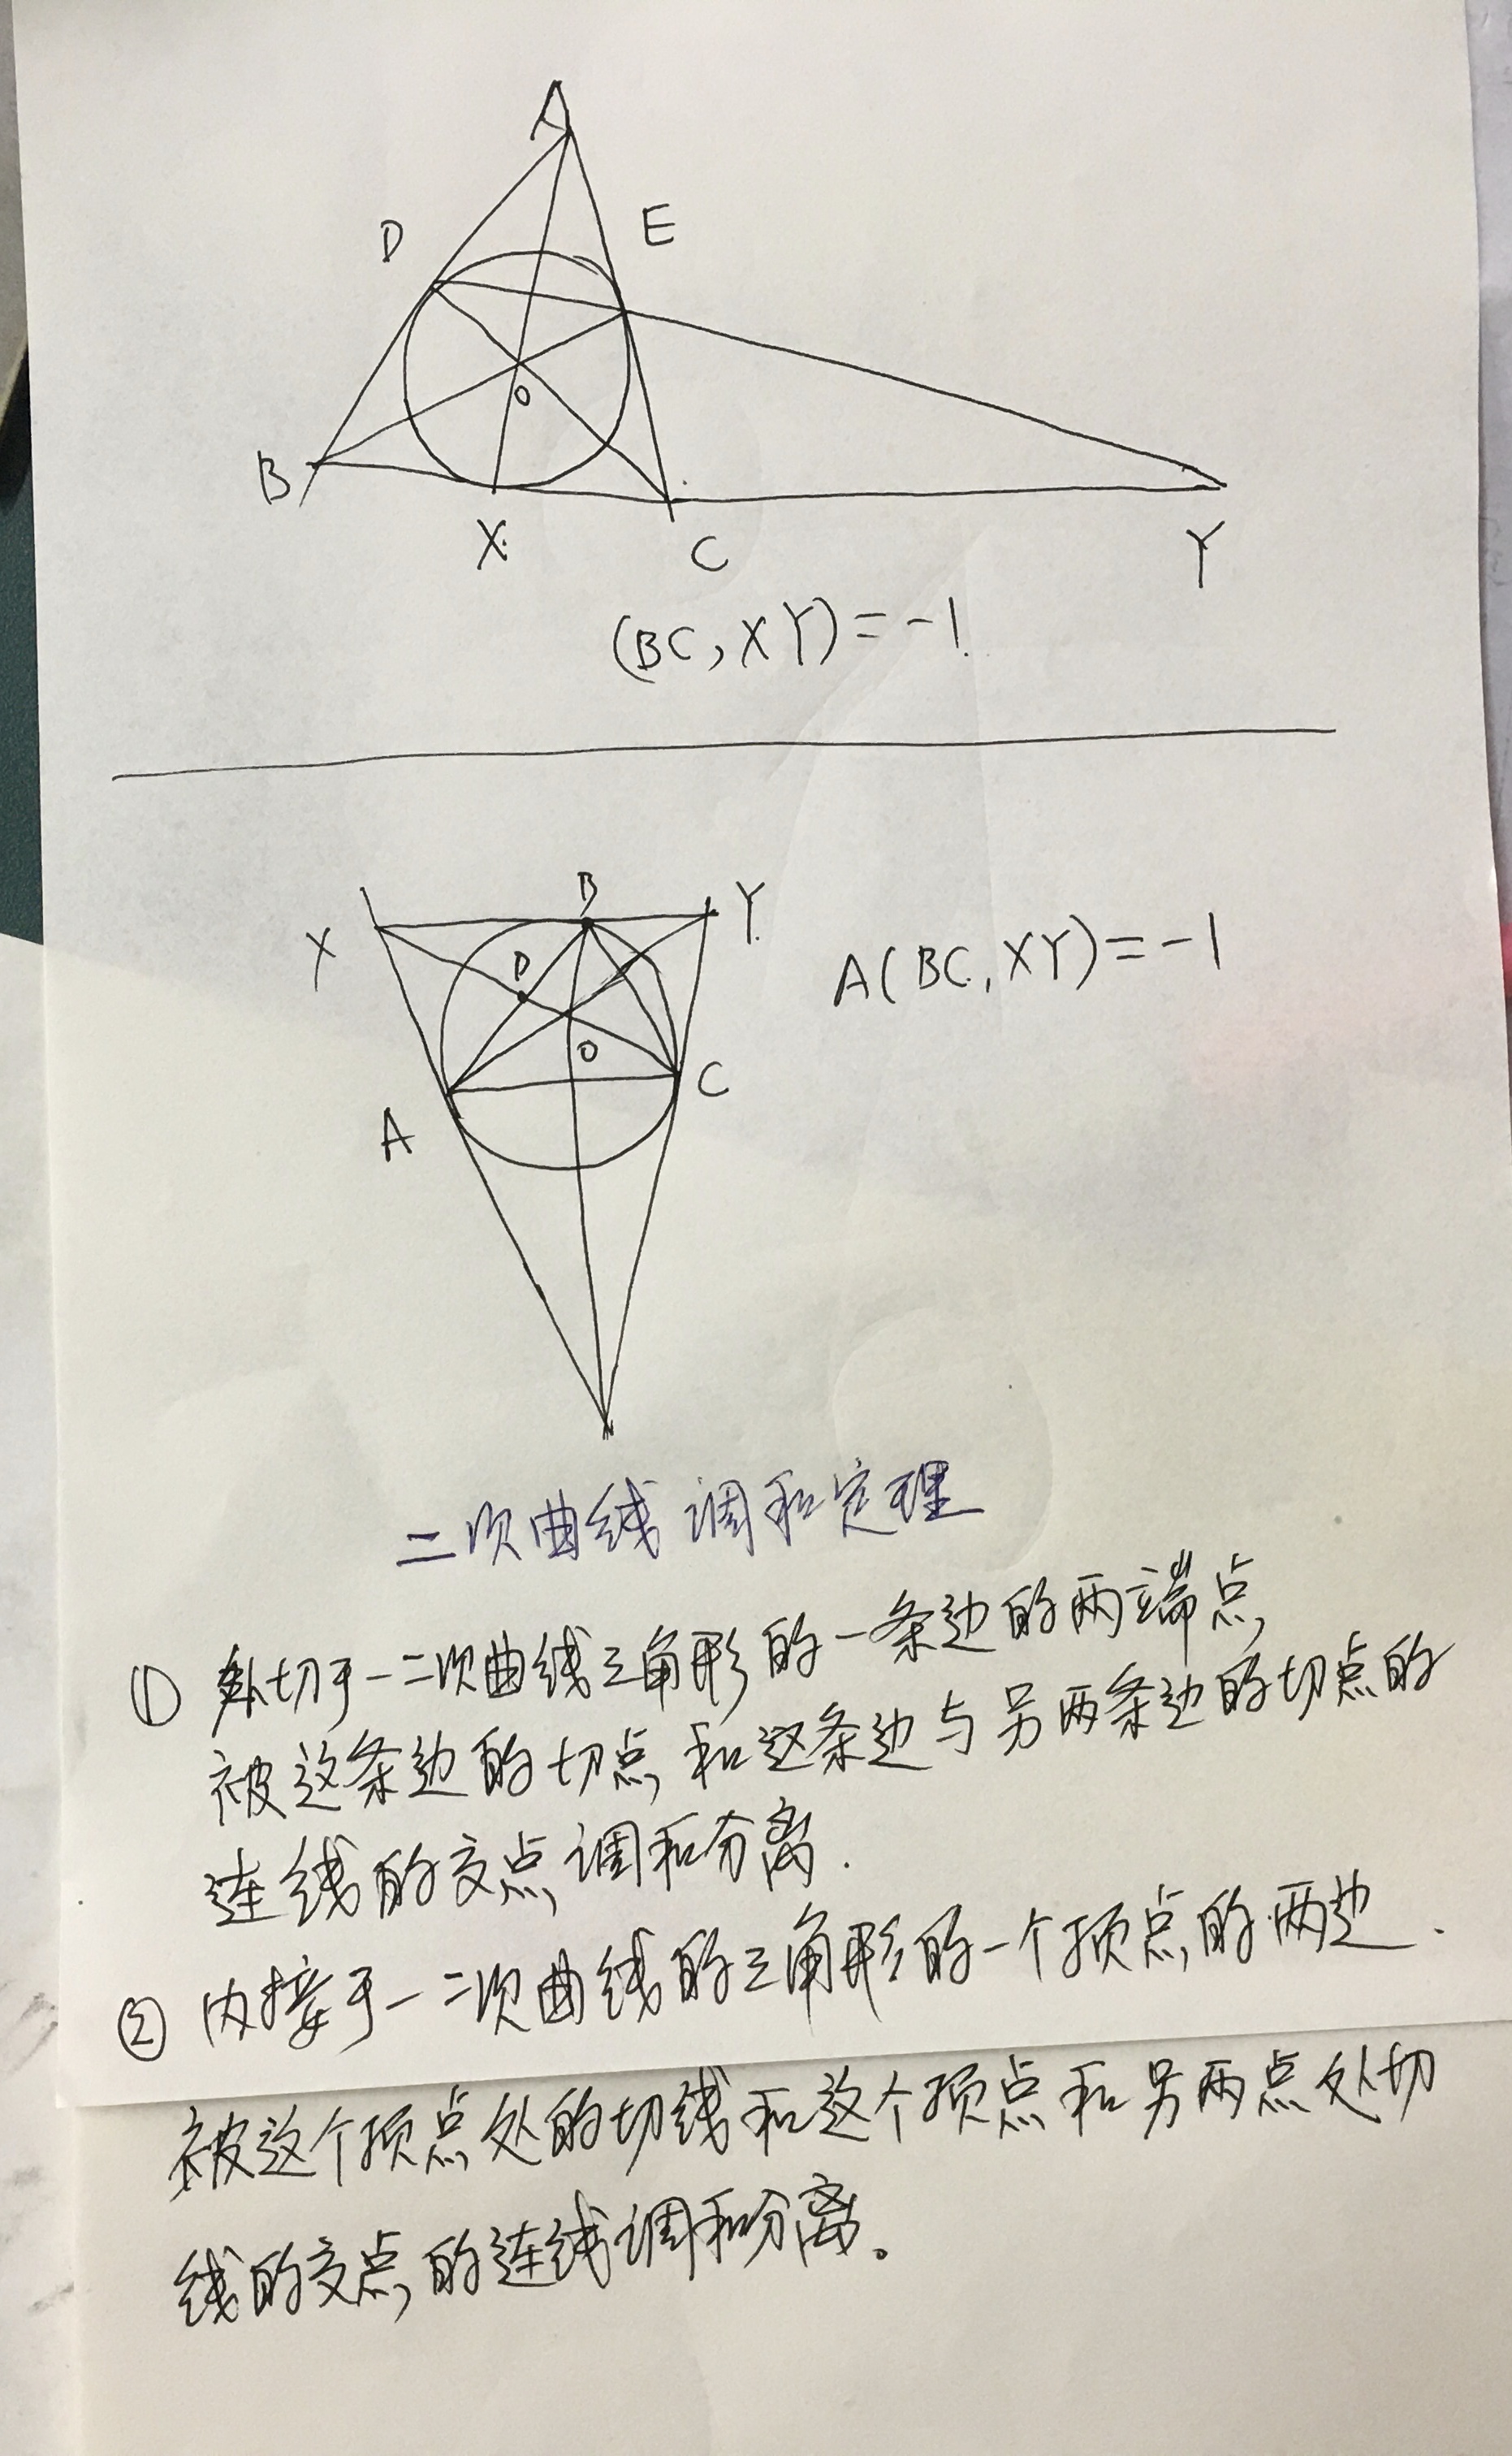 A
D
E
B
O
X
C
Y
(BC, XY)=-1.
B
X
Y.
D
A(BC, XY)=-1
O
C
A
二次曲线 调和定理
① 外切于一二次曲线三角形的一条边的两端点,
被这条边的切点, 和这条边与另两条边的切点的
连线的交点, 调和分离.
② 内接于一二次曲线的三角形的一个顶点的两边.
被这个顶点处的切线和这个顶点和另两点处切
线的交点,的连线调和分离。